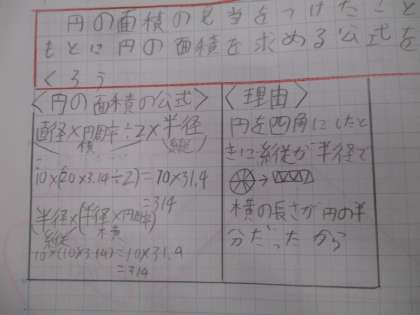 円の面積の見当をつけたこと
もとに円の面積を求める公式を
くろう
<円の面積の公式>
直径×円周率÷2×半径
横 縦
10×(20×3.14÷2)=10×31.4
=314
半径×(半径×円周率)
縦 横
10×(10×3.14)=10×31.4
=314
<理由>
円を四角にしたと
きに縦が半径で
横の長さが円の半
分だったから